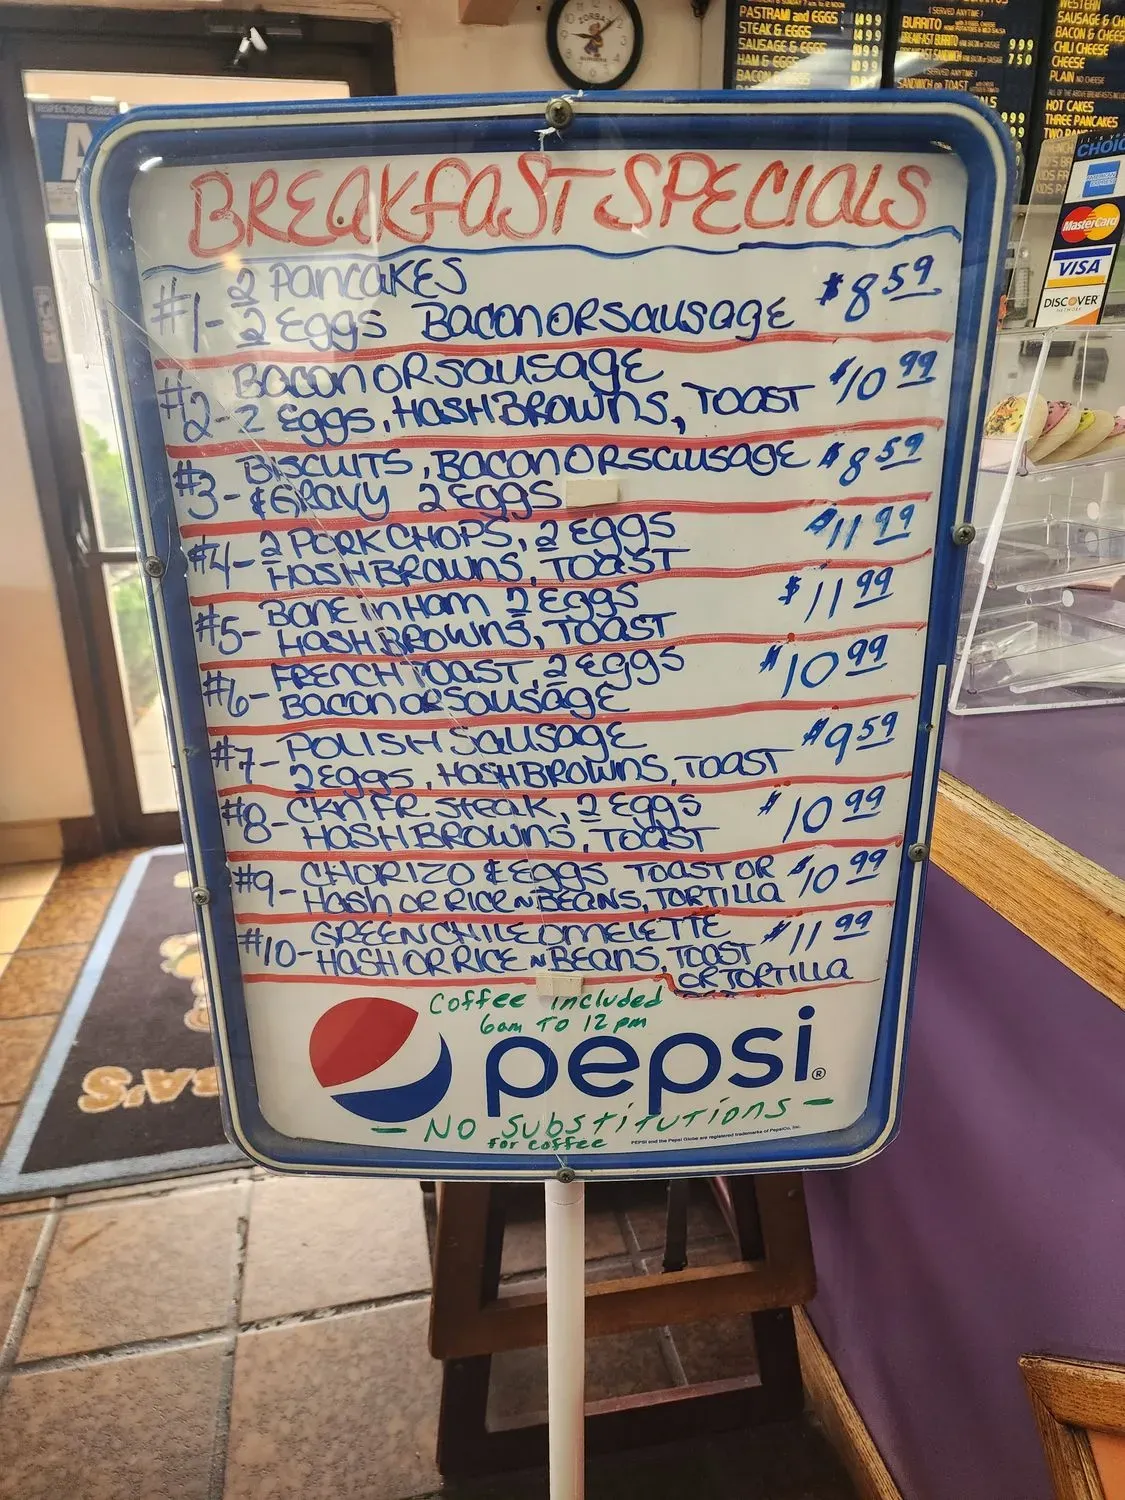 ZORBA'S
PASTRAMI and EGGS
STEAK & EGGS
SAUSAGE & EGGS
HAM & EGGS
BACON
( SERVED ANYTIME )
BURRITO
BREAKFAST BURRITO
999
BREAKFAST SANDWICH
750
( SERVED ANYTIME )
SANDWICH on TOAST
WESTERN
SAUSAGE & CH
BACON & CHEES
CHILI CHEESE
CHEESE
PLAIN NO CHEESE
HOT CAKES
THREE PANCAKES
TWO PAN
CHOIC
AMERICAN EXPRESS
MasterCard
VISA
DISCOVER
NETWORK
INSPECTION GRADE
A
BREAKFAST SPECIALS
#1- 2 PANCAKES
2 EGGS BACON OR SAUSAGE $8.59
#2- BACON OR SAUSAGE
2 EGGS, HASHBROWNS, TOAST $10.99
#3- BISCUITS, BACON OR SAUSAGE $8.59
& GRAVY 2 EGGS
#4- 2 PORK CHOPS, 2 EGGS $11.99
HASHBROWNS, TOAST
#5- BONE IN HAM 2 EGGS $11.99
HASHBROWNS, TOAST
#6- FRENCH TOAST, 2 EGGS $10.99
BACON OR SAUSAGE
#7- POLISH SAUSAGE $9.59
2 EGGS, HASHBROWNS, TOAST
#8- CKN FR STEAK, 2 EGGS $10.99
HASHBROWNS, TOAST
#9- CHORIZO & EGGS TOAST OR $10.99
HASH OR RICE N BEANS, TORTILLA
#10- GREEN CHILE OMELETTE $11.99
HASH OR RICE N BEANS, TOAST
OR TORTILLA
Coffee included
6am TO 12pm
pepsi®
- NO SUBSTITUTIONS -
for coffee
PEPSI and the Pepsi Globe are registered trademarks of PepsiCo, Inc.
BA'S